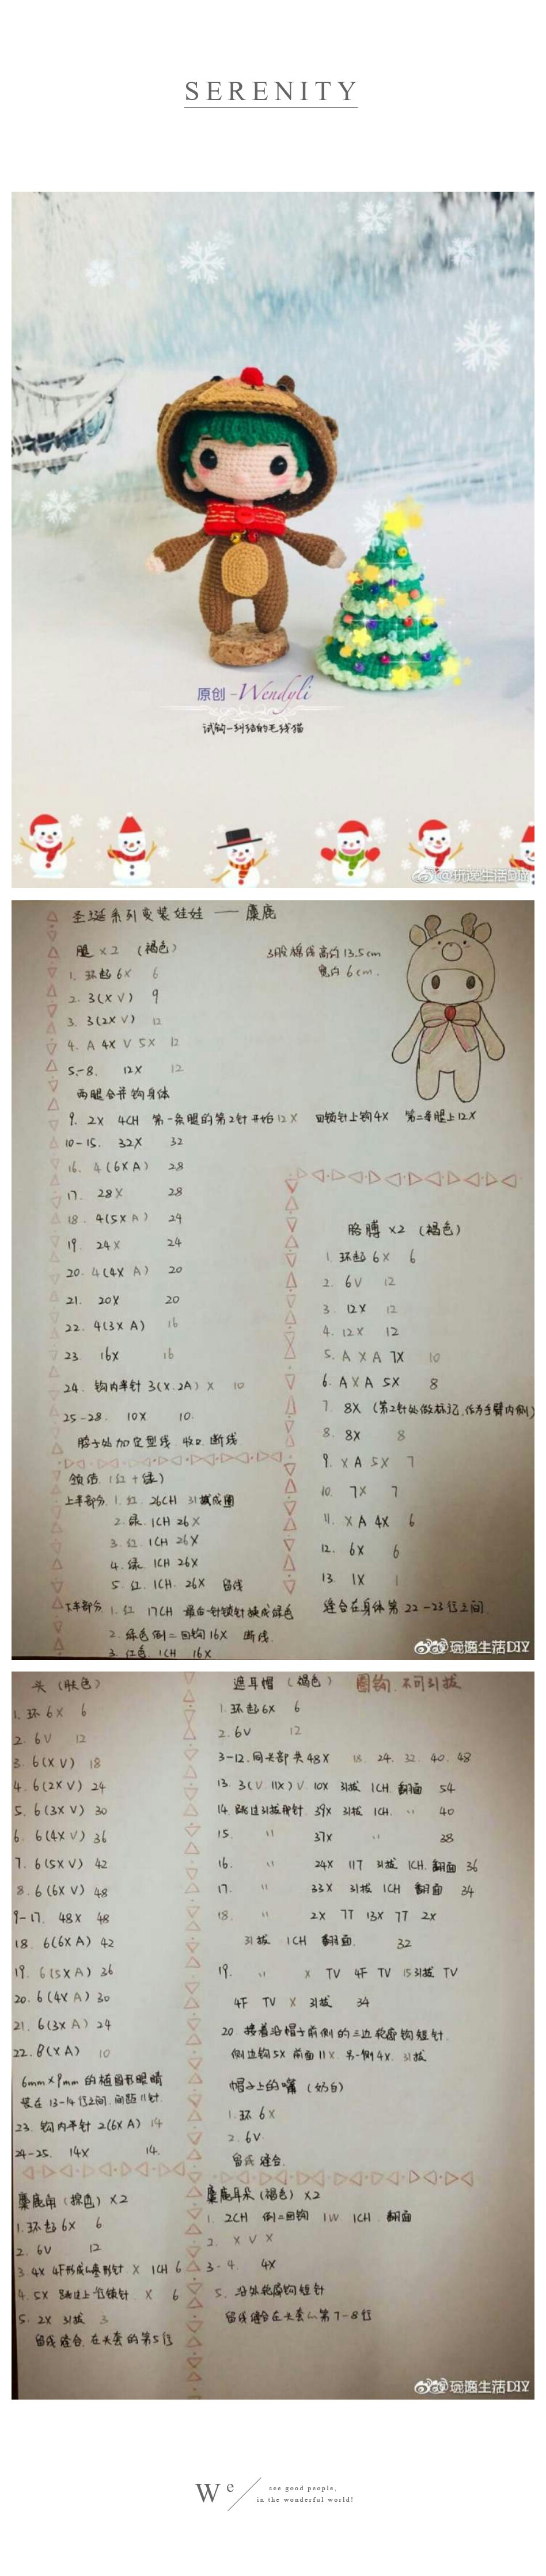 SERENITY
原创-Wendyli
试钩-纠结的毛线猫
@玩趣生活DIY
圣诞系列变装娃娃 — 麋鹿
腿 x2 (褐色)
3股棉线高约13.5cm
宽约6cm.
1. 环起6X 6
2. 3(X V) 9
3. 3(2X V) 12
4. A 4X V 5X 12
5.-8. 12X 12
两腿合并钩身体
9. 2X 4CH 第一条腿的第2针开始12X 回锁针上钩4X 第二条腿上12X
10-15. 32X 32
16. 4(6X A) 28
17. 28X 28
18. 4(5X A) 24
19. 24X 24
20. 4(4X A) 20
21. 20X 20
22. 4(3X A) 16
23. 16X 16
24. 钩内半针 3(X.2A) X 10
25-28. 10X 10.
脖子处加定型线 收口 断线
领结 (红+绿)
上半部分. 1. 红. 26CH 引拔成圈
2. 绿. 1CH 26X
3. 红. 1CH 26X
4. 绿. 1CH 26X
5. 红. 1CH. 26X 留线
下半部分. 1. 红 17CH 最后一针锁针换成绿色
2. 绿色 倒二回钩16X 断线.
3. 红色 1CH 16X
胳膊 x2 (褐色)
1. 环起6X 6
2. 6V 12
3. 12X 12
4. 12X 12
5. A X A 7X 10
6. A X A 5X 8
7. 8X (第2针处做标记,作为手臂内侧)
8. 8X 8
9. X A 5X 7
10. 7X 7
11. X A 4X 6
12. 6X 6
13. 1X 1
缝合在身体第22-23行之间
@玩趣生活DIY
头 (肤色)
1. 环6X 6
2. 6V 12
3. 6(X V) 18
4. 6(2X V) 24
5. 6(3X V) 30
6. 6(4X V) 36
7. 6(5X V) 42
8. 6(6X V) 48
9-17. 48X 48
18. 6(6X A) 42
19. 6(5X A) 36
20. 6(4X A) 30
21. 6(3X A) 24
22. 8(X A) 10
6mm×9mm的椭圆形眼睛
装在13-14行之间.间距11针.
23. 钩内半针 2(6X A) 14
24-25. 14X 14.
遮耳帽 (褐色) 圈钩.不可引拔
1. 环起6X 6
2. 6V 12
3-12. 同头部头48X 18. 24. 32. 40. 48
13. 3(V. 11X) V. 10X 引拔 1CH. 翻面 54
14. 跳过引拔那针. 39X 引拔 1CH. " 40
15. " 37X " 38
16. " 24X 11T 引拔 1CH. 翻面 36
17. " 33X 引拔 1CH 翻面 34
18. " 2X 7T 13X 7T 2X
引拔 1CH 翻面. 32
19. " X TV 4F TV 15引拔 TV
4F TV X 引拔 34
20. 接着沿帽子前侧的三边轮廓钩短针.
侧边钩5X 前面11X. 另一侧4X. 引拔
帽子上的嘴 (奶白)
1. 环6X
2. 6V.
留线缝合.
麋鹿角 (棕色) X2
1. 环起6X 6
2. 6V 12
3. 4X 4F形成一枣形针 X 1CH 6
4. 5X 跳过上一行锁针 X 6
5. 2X 引拔 3
留线缝合.在头套的第5行
麋鹿耳朵 (褐色) X2
1. 2CH 倒二回钩 1W 1CH. 翻面
2. X V X
3-4. 4X
5. 沿外轮廓钩短针
留线缝合在头套的第7-8行
@玩趣生活DIY
We see good people,
in the wonderful world!